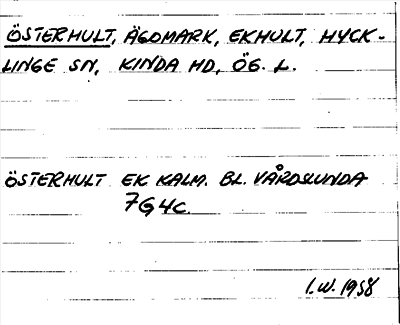 ÖSTERHULT, ÄGOMARK, EKHULT, HYCK-
LINGE SN, KINDA HD, ÖG. L.
ÖSTERHULT EK KALM. BL. VÅRDSLUNDA
7G4C.
I.W. 1958